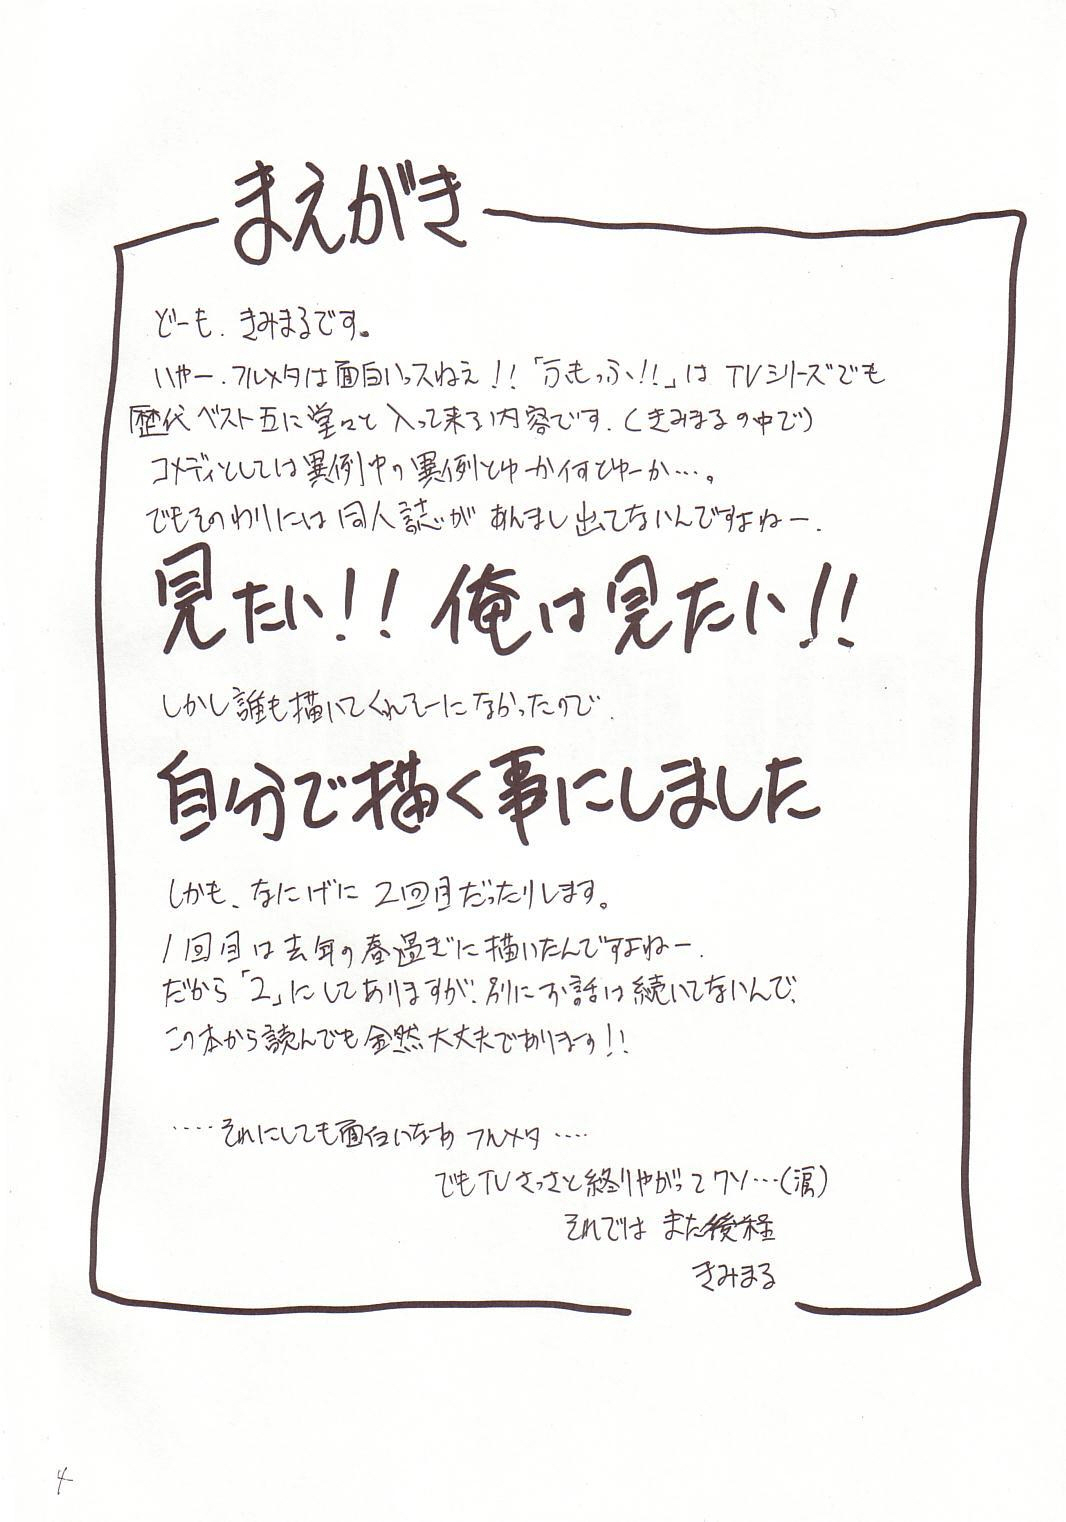 まえがき
どーも、きみまるです。
いやー、フルメタは面白いっスねえ!!「ふもっふ!!」はTVシリーズでも
歴代ベスト五に堂々と入って来る内容です。(きみまるの中で)
コメディとしては異例中の異例とゆーか何とゆーか…。
でもそのわりには同人誌があんまし出てないんですよねー。
見たい!!俺は見たい!!
しかし誰も描いてくれそーになかったので、
自分で描く事にしました
しかも、なにげに2回目だったりします。
1回目は去年の春過ぎに描いたんですよねー。
だから「2」にしてありますが、別にお話は続いてないんで、
この本から読んでも全然大丈夫であります!!
‥‥それにしても面白いなぁフルメタ‥‥
でもTVさっさと終りやがってクソ…(涙)
それでは また後程
きみまる
4